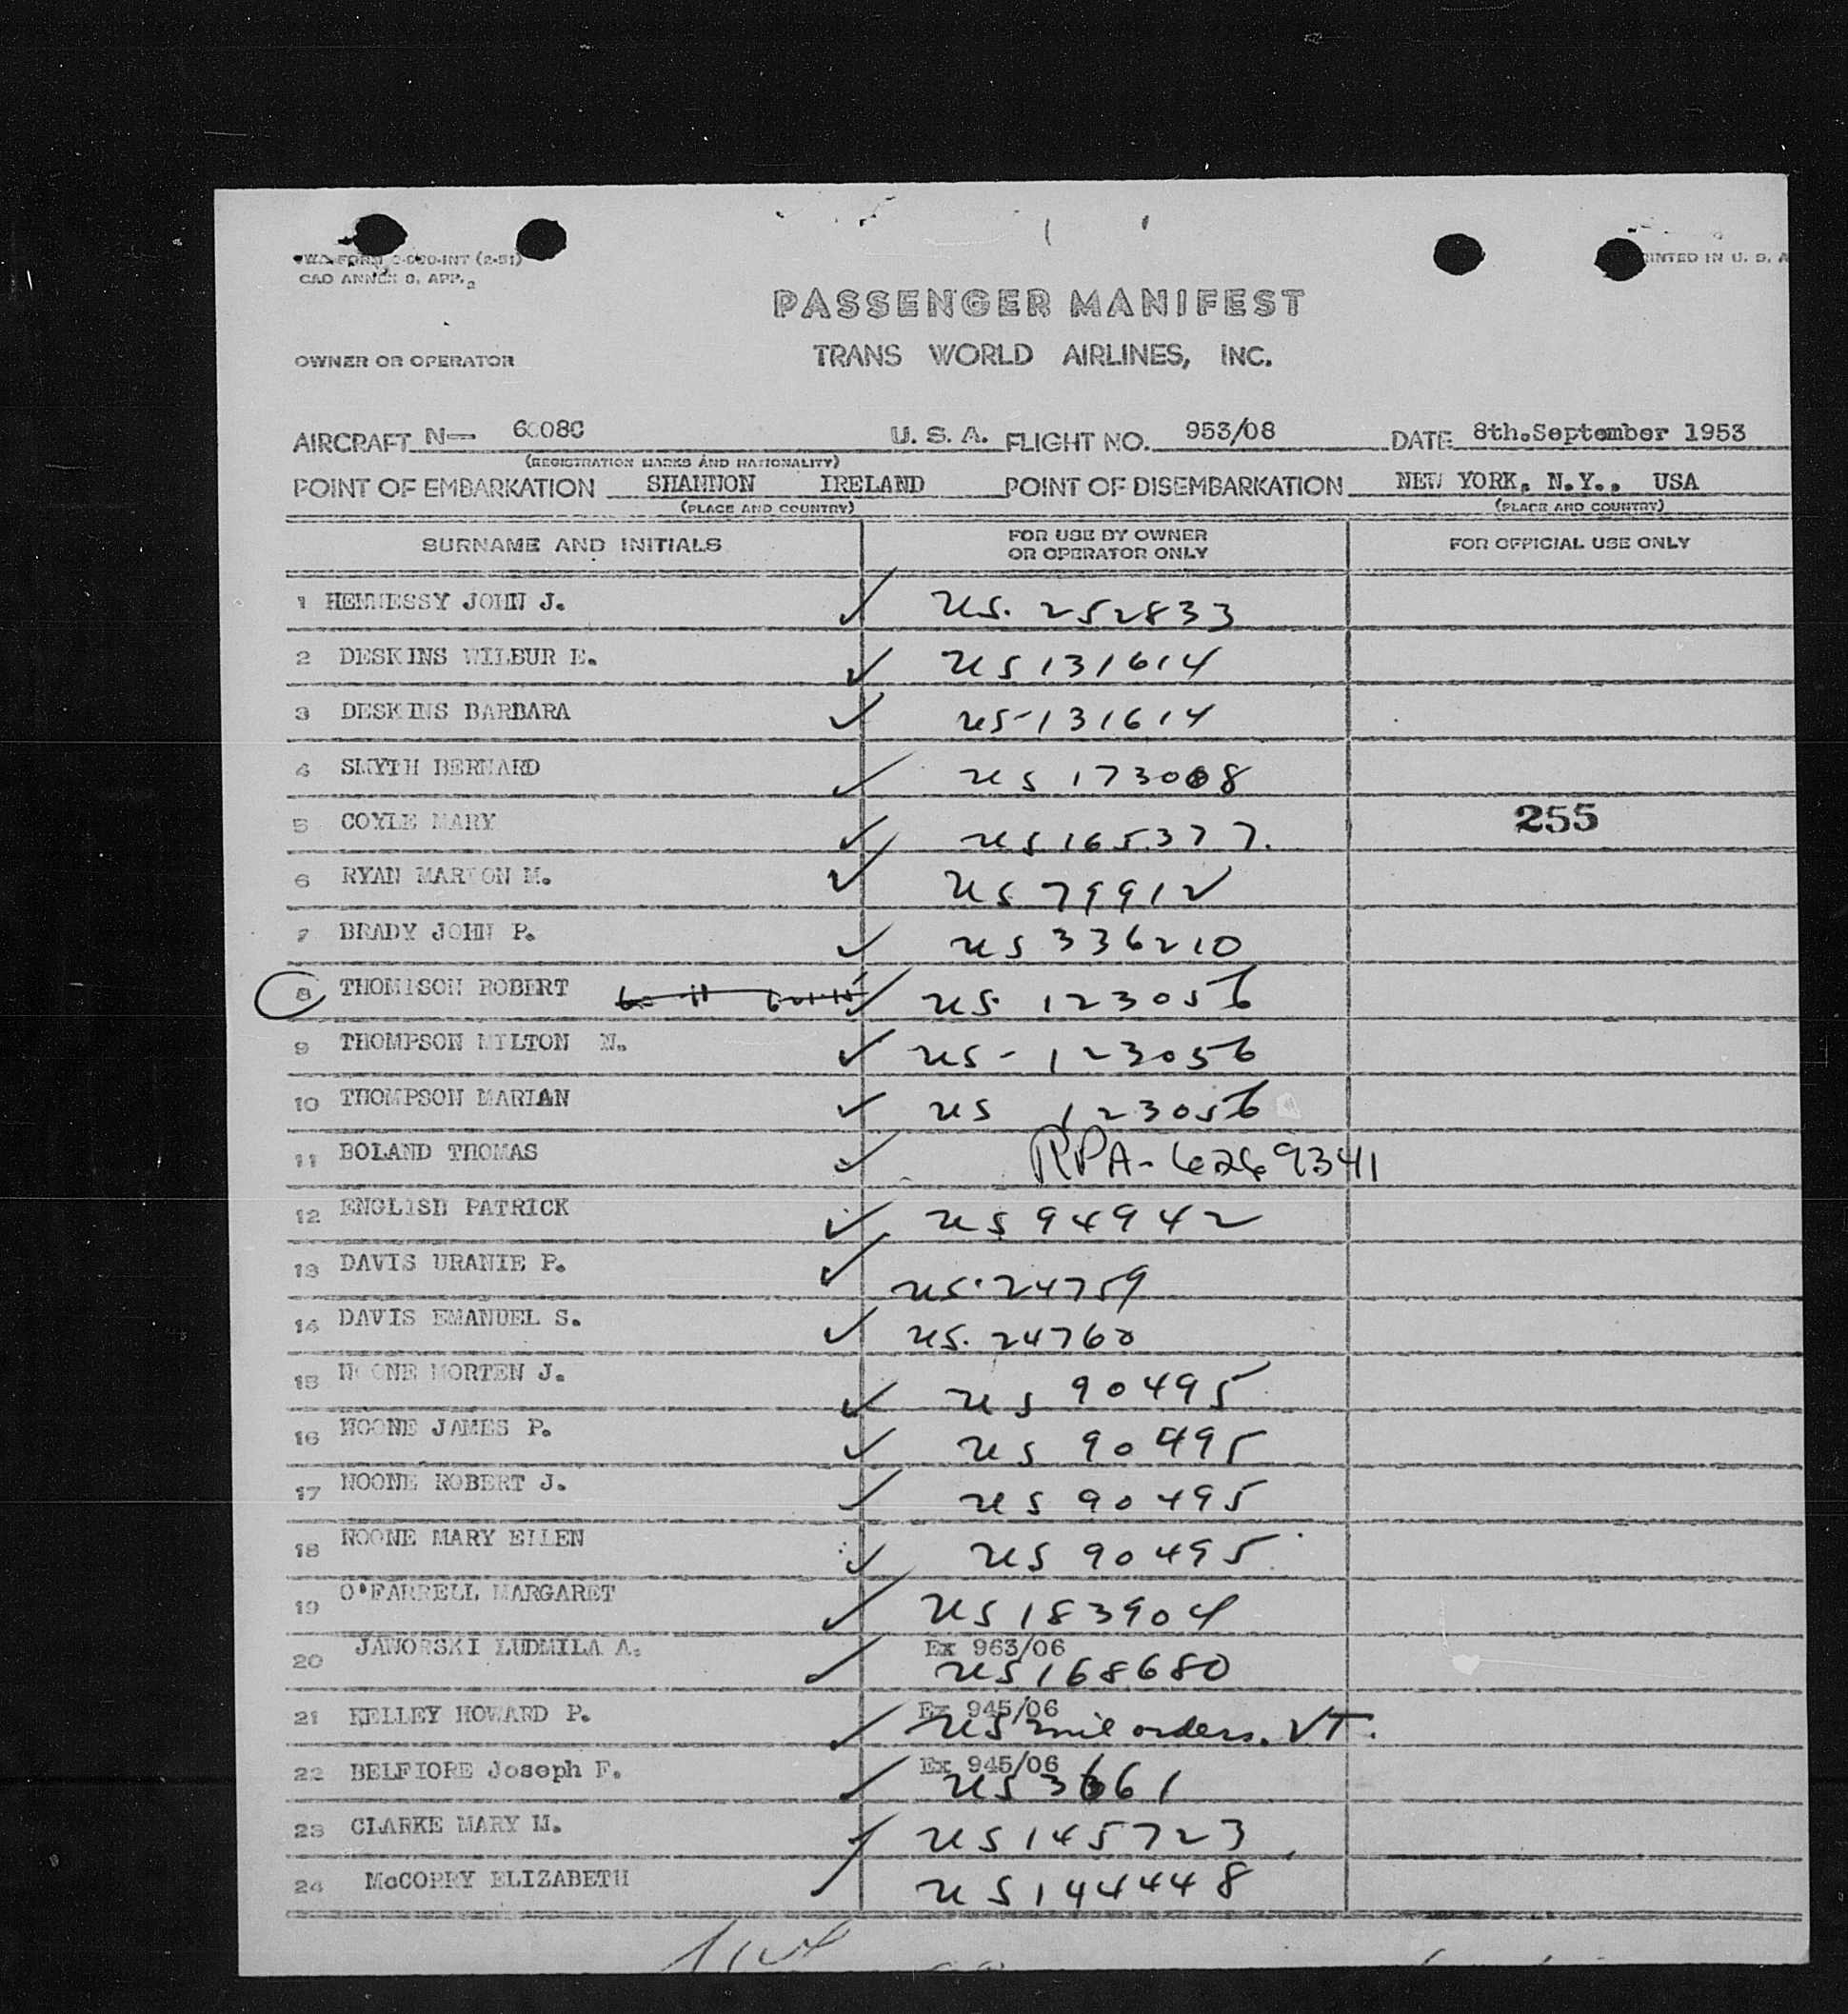 CAO ANNEX 9, APP. 2
PRINTED IN U. S. A
PASSENGER MANIFEST
OWNER OR OPERATOR TRANS WORLD AIRLINES, INC.
AIRCRAFT N— 6008C U. S. A. FLIGHT NO. 953/08 DATE 8th.September 1953
(REGISTRATION MARKS AND NATIONALITY)
POINT OF EMBARKATION SHANNON IRELAND POINT OF DISEMBARKATION NEW YORK, N.Y., USA
(PLACE AND COUNTRY) (PLACE AND COUNTRY)
SURNAME AND INITIALS FOR USE BY OWNER OR OPERATOR ONLY FOR OFFICIAL USE ONLY
1 HENNESSY JOHN J. ✓ US. 252833
2 DESKINS WILBUR E. ✓ US 131614
3 DESKINS BARBARA ✓ US-131614
4 SMYTH BERNARD ✓ US 173008
5 COYLE MARY ✓ US 165377. 255
6 RYAN MARION M. ✓ US 79912
7 BRADY JOHN P. ✓ US 336210
8 THOMISON ROBERT ✓ US. 123056
9 THOMPSON MILTON N. ✓ US - 123056
10 THOMPSON MARIAN ✓ US 123056
11 BOLAND THOMAS ✓ RPA-6269341
12 ENGLISH PATRICK ✓ US 94942
13 DAVIS URANIE P. ✓ US. 24759
14 DAVIS EMANUEL S. ✓ US. 24760
15 NOONE MORTEN J. ✓ US 90495
16 NOONE JAMES P. ✓ US 90495
17 NOONE ROBERT J. ✓ US 90495
18 NOONE MARY EILEN ✓ US 90495
19 O'FARRELL MARGARET ✓ US 183904
20 JAWORSKI LUDMILA A. ✓ Ex 963/06 US 168680
21 KELLEY HOWARD P. ✓ Ex 945/06 US mil orders. VT.
22 BELFIORE Joseph F. ✓ Ex 945/06 US 3661
23 CLARKE MARY M. ✓ US 145723
24 McCORRY ELIZABETH ✓ US 144448